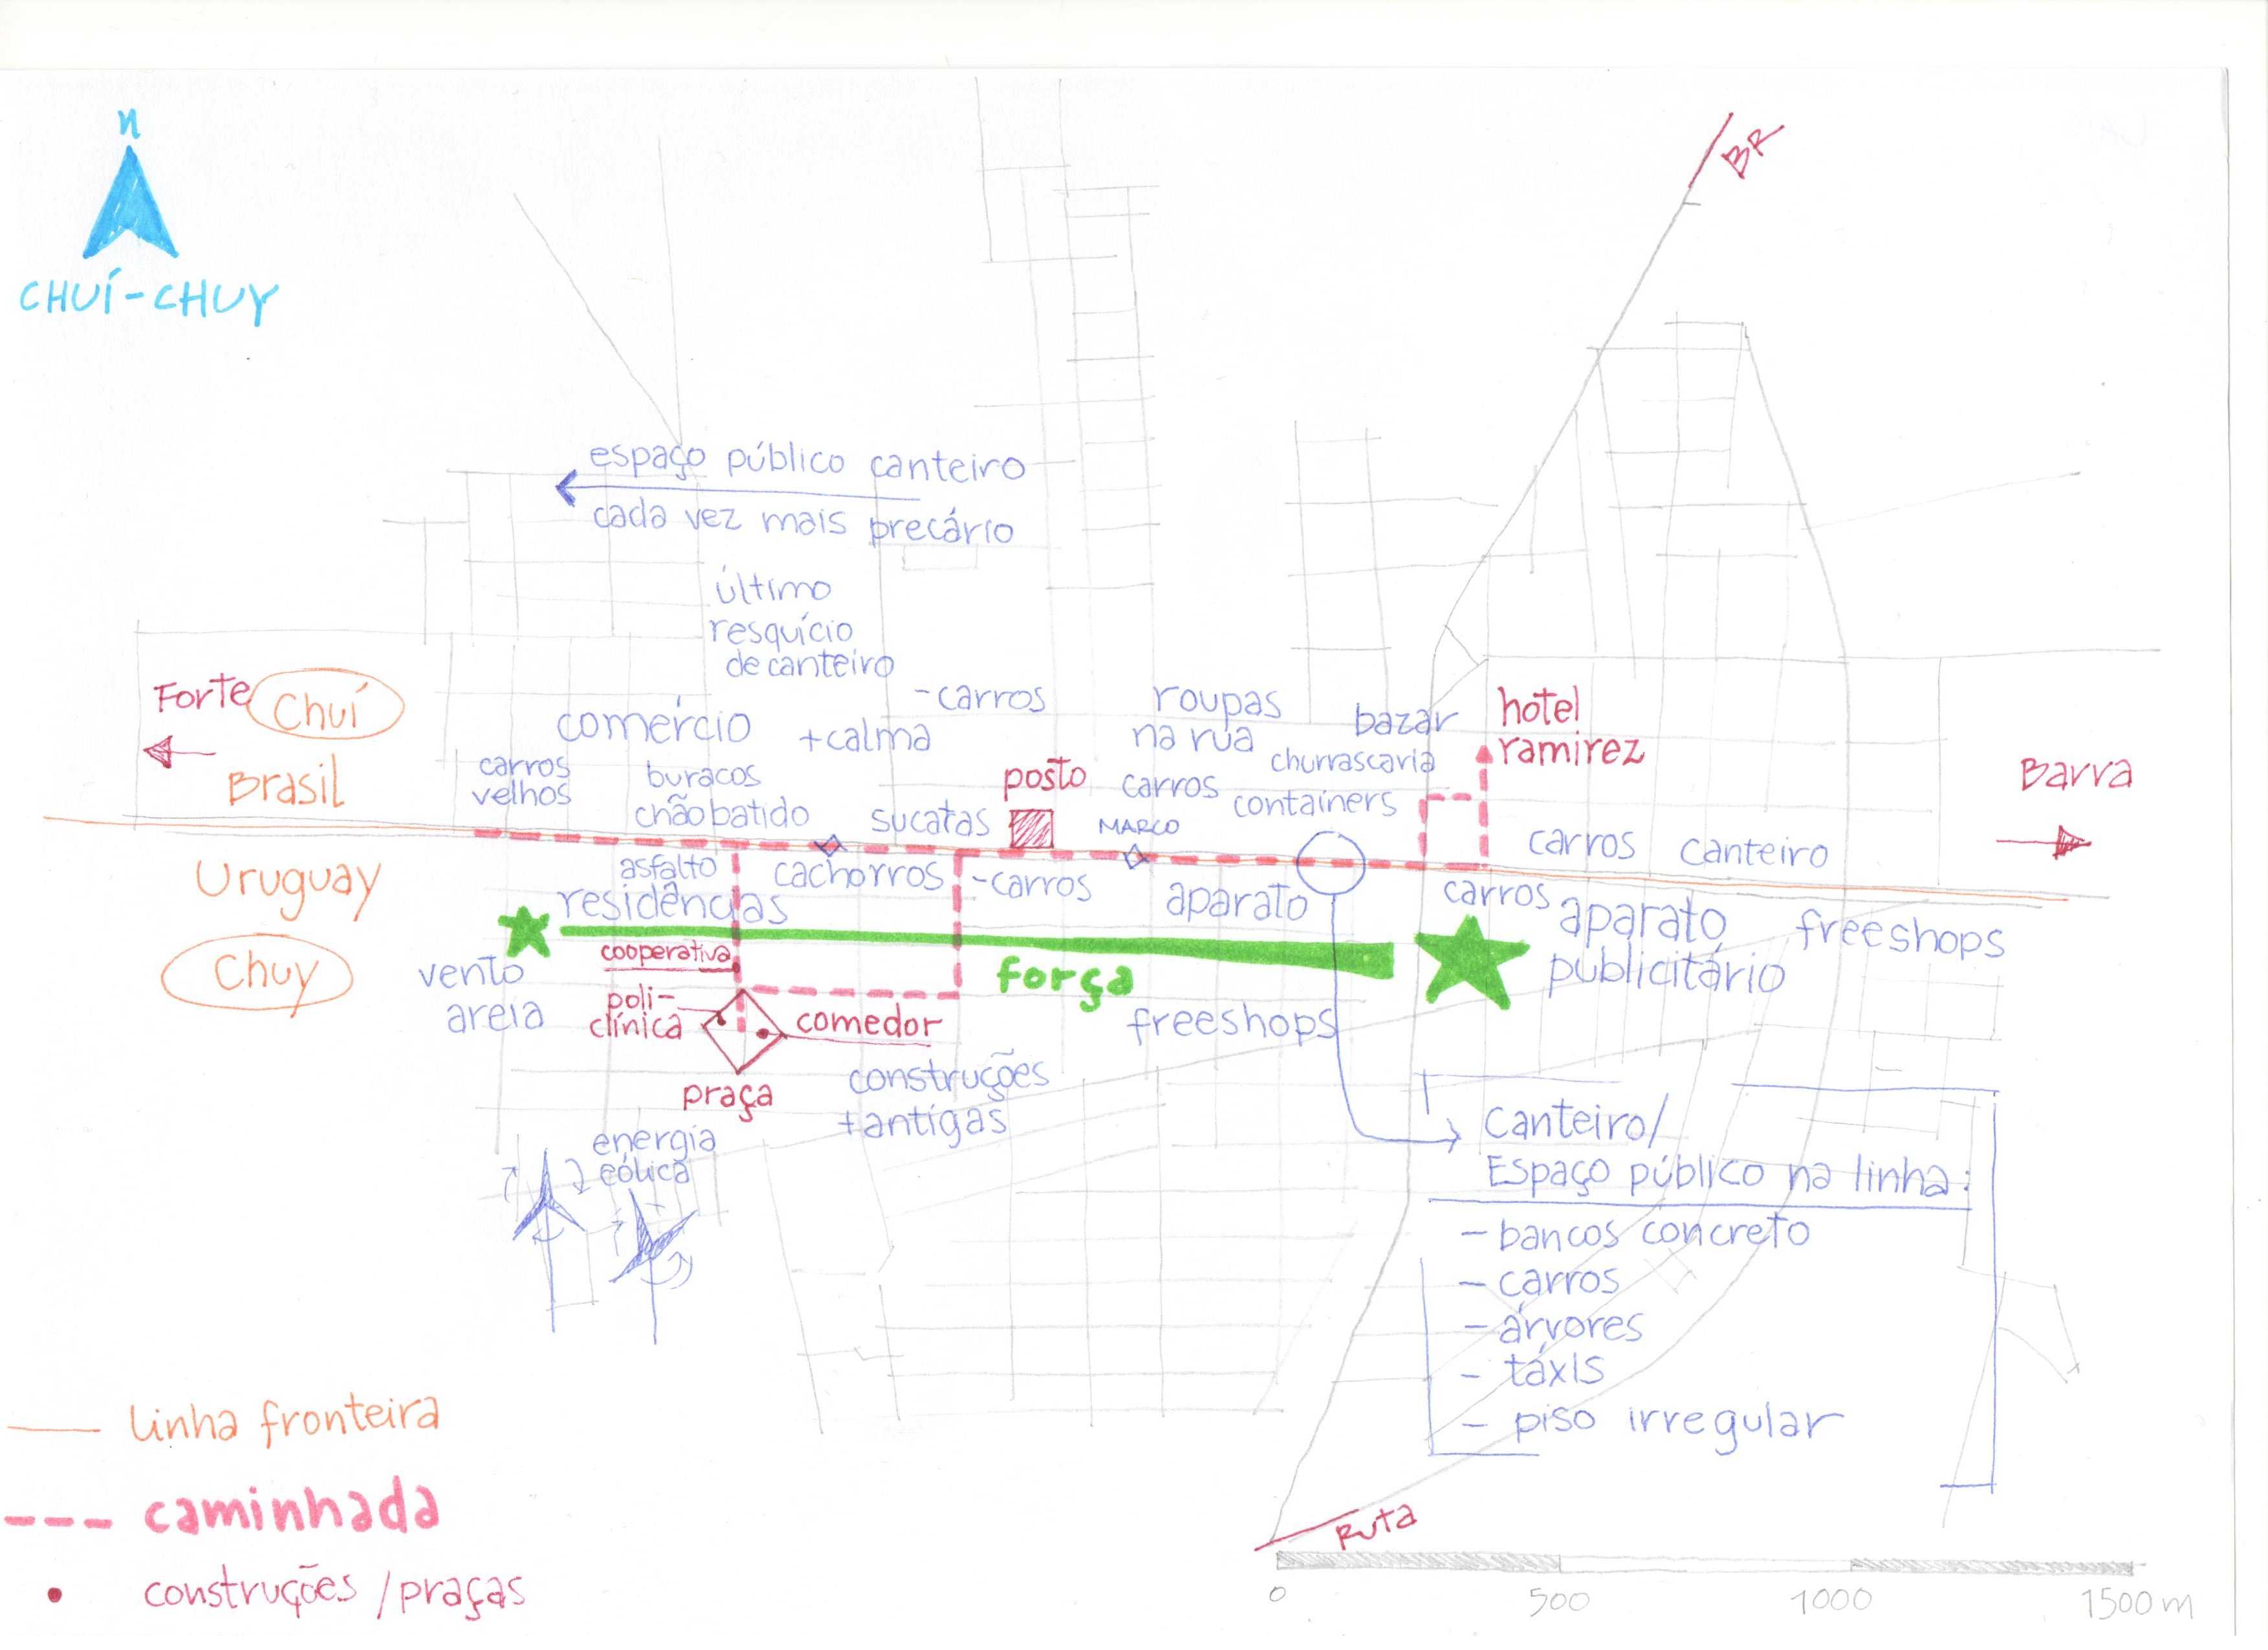 N
CHUÍ-CHUY
BR
espaço público canteiro
cada vez mais precário
último
resquício
de canteiro
Forte
Chuí
Brasil
comércio
+calma
-carros
roupas
na rua
bazar
churrascaria
hotel
ramirez
carros
velhos
buracos
chão batido
sucatas
posto
carros
MARCO
containers
Barra
carros
canteiro
Uruguay
Chuy
asfalto
residências
cachorros
-carros
aparato
carros
aparato
publicitário
freeshops
cooperativa
força
vento
areia
poli-
clínica
comedor
freeshops
praça
construções
+antigas
energia
eólica
Canteiro/
Espaço público na linha:
- bancos concreto
- carros
- árvores
- táxis
- piso irregular
Ruta
linha fronteira
caminhada
construções / praças
0
500
1000
1500 m